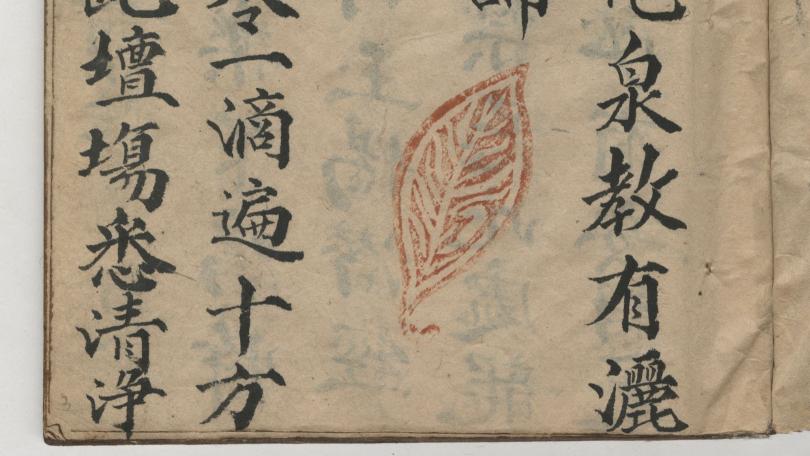 泉教有灑
師
令一滴遍十方
此壇塲悉清淨